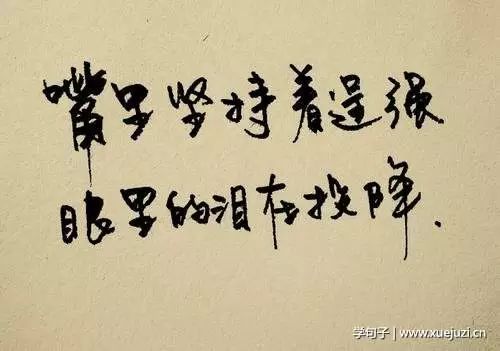 嘴里坚持着逞强
眼里的泪在投降.
学句子 | www.xuejuzi.cn